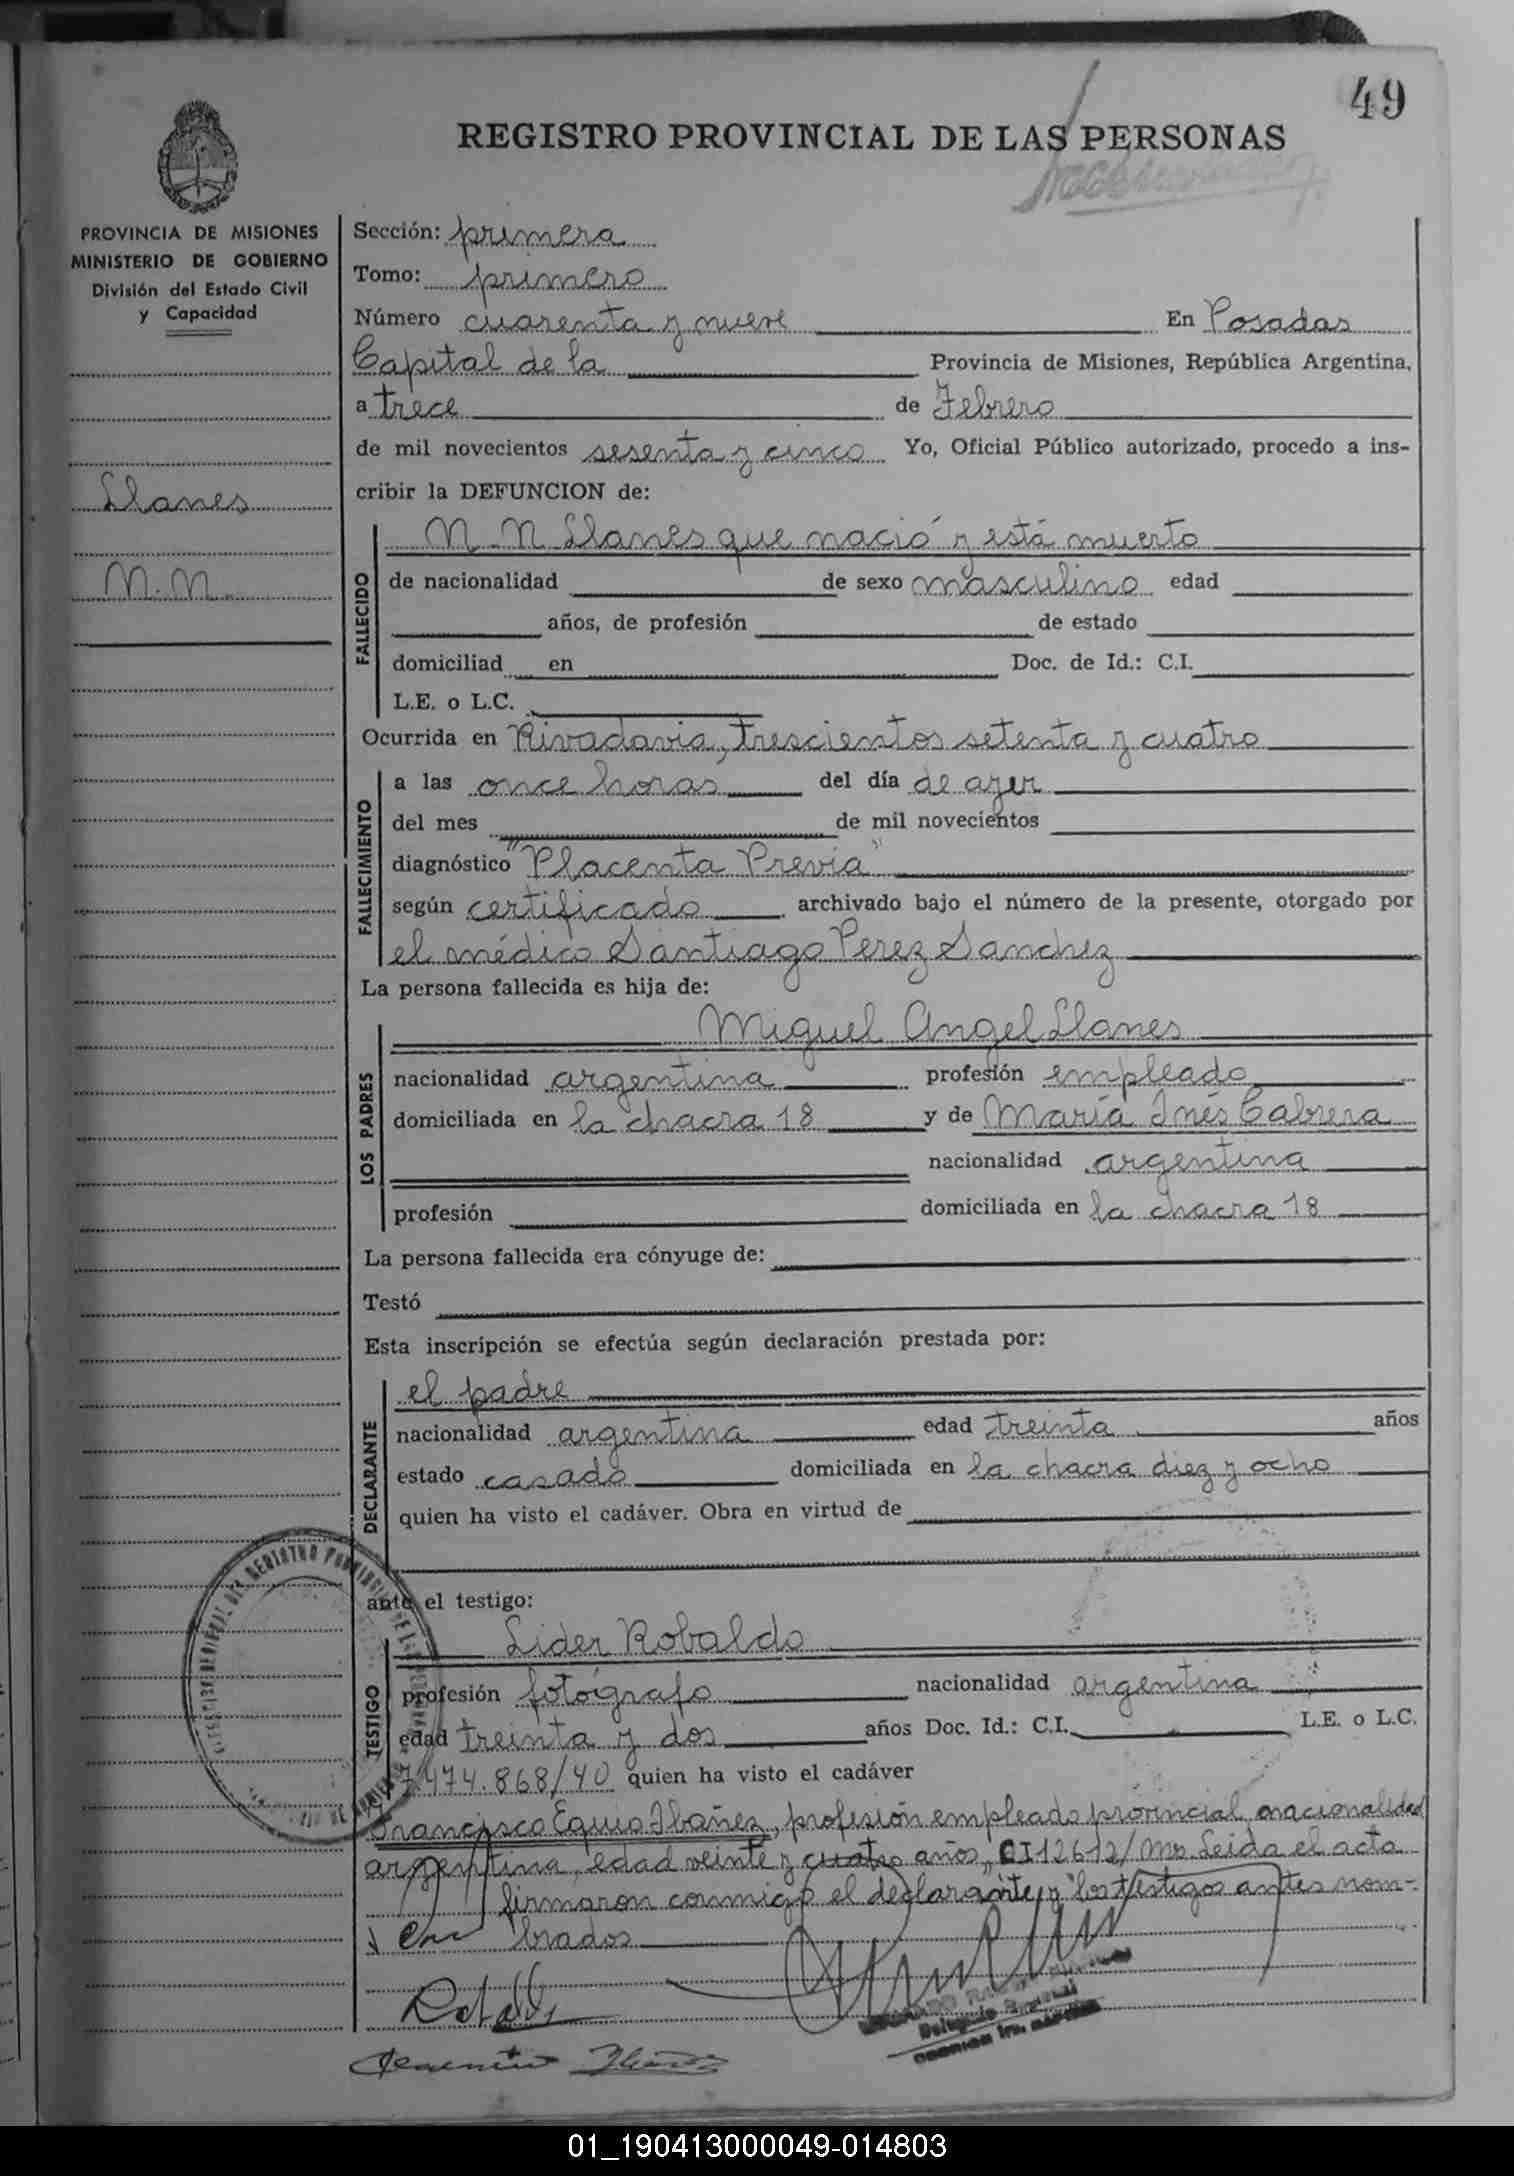 49
REGISTRO PROVINCIAL DE LAS PERSONAS
PROVINCIA DE MISIONES
MINISTERIO DE GOBIERNO
División del Estado Civil
y Capacidad
Llanes
N.N.
Sección: primera
Tomo: primero
Número cuarenta y nueve En Posadas
Capital de la Provincia de Misiones, República Argentina,
a trece de Febrero
de mil novecientos sesenta y cinco Yo, Oficial Público autorizado, procedo a ins-
cribir la DEFUNCION de:
FALLECIDO
N. N Llanes que nació y está muerto
de nacionalidad de sexo masculino edad
años, de profesión de estado
domiciliad en Doc. de Id.: C.I.
L.E. o L.C.
Ocurrida en Rivadavia, trescientos setenta y cuatro
FALLECIMIENTO
a las once horas del día de ayer
del mes de mil novecientos
diagnóstico "Placenta Previa"
según certificado archivado bajo el número de la presente, otorgado por
el médico Santiago Perez Sanchez
La persona fallecida es hija de:
LOS PADRES
Miguel Angel Llanes
nacionalidad argentina profesión empleado
domiciliada en la chacra 18 y de María Inés Cabrera
nacionalidad argentina
profesión domiciliada en la chacra 18
La persona fallecida era cónyuge de:
Testó
Esta inscripción se efectúa según declaración prestada por:
DECLARANTE
el padre
nacionalidad argentina edad treinta años
estado casado domiciliada en la chacra diez y ocho
quien ha visto el cadáver. Obra en virtud de
ante el testigo:
TESTIGO
Lider Robaldo
profesión fotógrafo nacionalidad argentina
edad treinta y dos años Doc. Id.: C.I. L.E. o L.C.
7474.868/40 quien ha visto el cadáver
Francisco Equio Ibañez, profesión empleado provincial nacionalidad
argentina, edad veinte y cuatro años, CI 12612/Mns Leida el acta
firmaron conmigo el declarante y los testigos antes nom-
brados
01_190413000049-014803